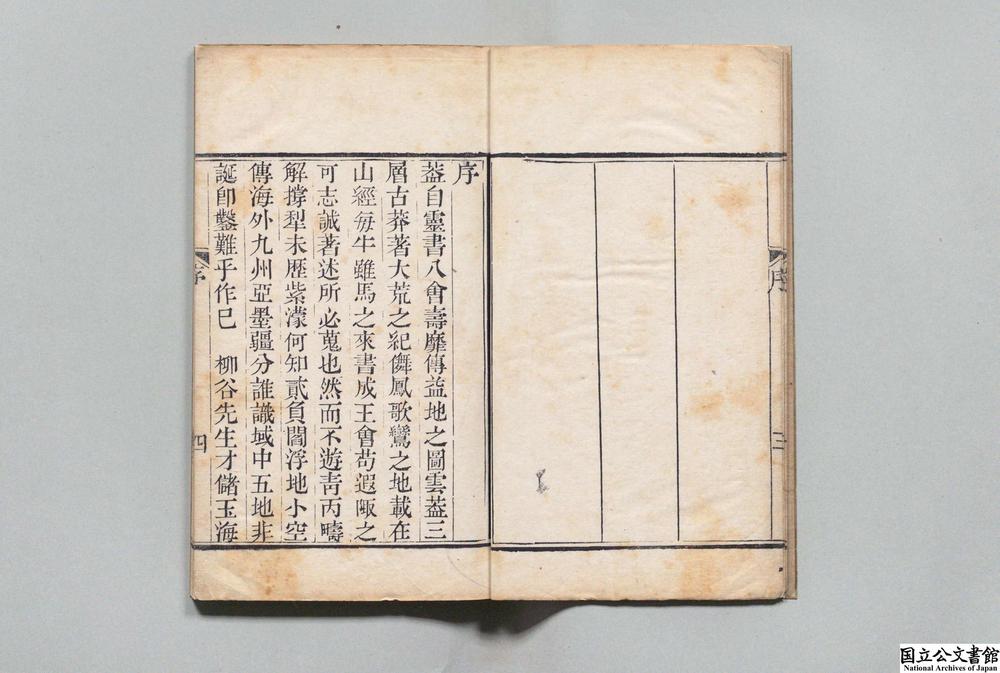 序
三
序
蓋自靈書八會壽靡傳益地之圖雲葢三
層古莽著大荒之紀儛鳳歌鸞之地載在
山經每牛雖馬之來書成王會苟遐陬之
可志誠著述所必蒐也然而不遊靑丙疇
解撐犁未歴紫濛何知貳負閻浮地小空
傳海外九州亞墨疆分誰識域中五地非
誕卽鑿難乎作巳 柳谷先生才儲玉海
序
四
国立公文書館
National Archives of Japan